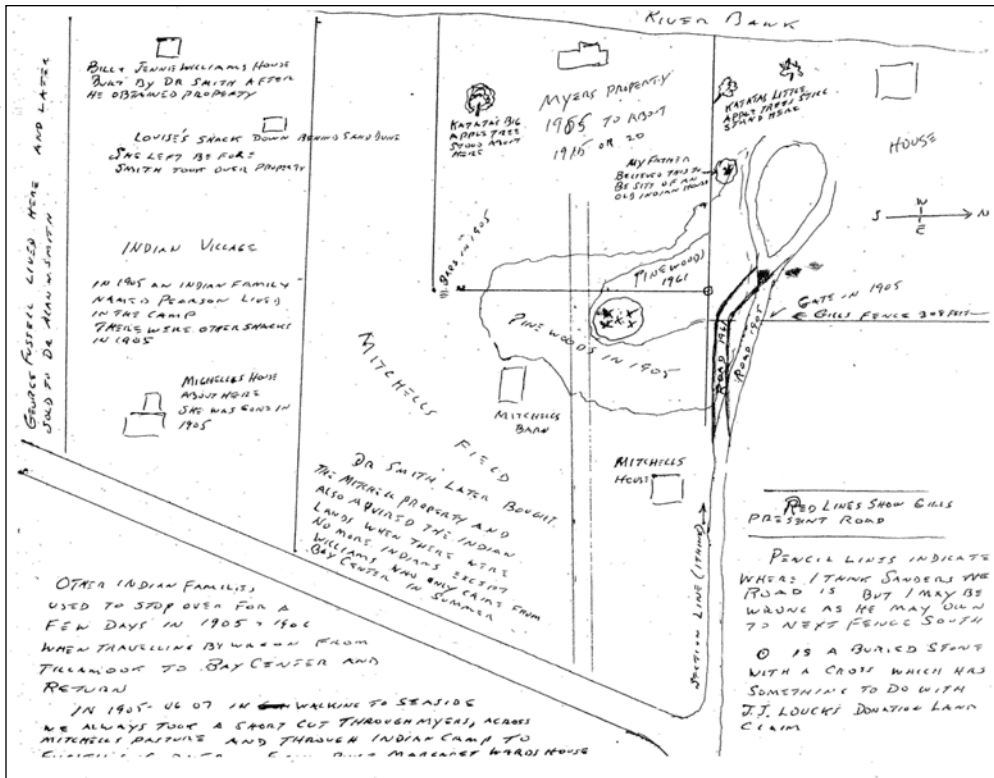 RIVER BANK
GEORGE FUSSELL LIVED HERE AND LATER
SOLD TO DR ALAN SMITH
BILLY JENNIE WILLIAMS HOUSE
BUILT BY DR SMITH AFTER
HE OBTAINED PROPERTY
LOUISE'S SHACK DOWN BEHIND SAND DUNE
SHE LEFT BEFORE
SMITH TOOK OVER PROPERTY
INDIAN VILLAGE
IN 1905 AN INDIAN FAMILY
NAMED PEARSON LIVED
IN THE CAMP
THERE WERE OTHER SHACKS
IN 1905
MICHELLES HOUSE
ABOUT HERE
SHE WAS GONE IN
1905
KATATAS BIG
APPLE TREE
STOOD ABOUT
HERE
MYERS PROPERTY
1905 TO ABOUT
1915 OR 20
KATATAS LITTLE
APPLE TREES STILL
STAND HERE
HOUSE
MY FATHER
BELIEVED THIS TO
BE SITY OF AN
OLD INDIAN HOUSE
W
S N
E
BARS IN 1905
PINEWOODS
1961
PINEWOODS IN 1905
GATE IN 1905
GILLS FENCE
ROAD 1961
ROAD 1905
MITCHELLS
FIELD
MITCHELLS
BARN
MITCHELLS
HOUSE
DR SMITH LATER BOUGHT
THE MITCHELL PROPERTY AND
ALSO AQUIRED THE INDIAN
LANDS WHEN THERE WERE
NO MORE INDIANS EXCEPT
WILLIAMS WHO ONLY CAME FROM
BAY CENTER IN SUMMER
SECTION LINE
RED LINES SHOW GILLS
PRESENT ROAD
PENCIL LINES INDICATE
WHERE I THINK SANDERS
ROAD IS BUT I MAY BE
WRONG AS HE MAY OWN
TO NEXT FENCE SOUTH
O IS A BURIED STONE
WITH A CROSS WHICH HAS
SOMETHING TO DO WITH
J.J. LOUCKS DONATION LAND
CLAIM
OTHER INDIAN FAMILIES
USED TO STOP OVER FOR A
FEW DAYS IN 1905 & 1906
WHEN TRAVELLING BY WAGON FROM
TILLAMOOK TO BAY CENTER AND
RETURN
IN 1905-06 07 IN WALKING TO SEASIDE
WE ALWAYS TOOK A SHORT CUT THROUGH MYERS, ACROSS
MITCHELLS PASTURE AND THROUGH INDIAN CAMP TO
MARGARET WARDS HOUSE